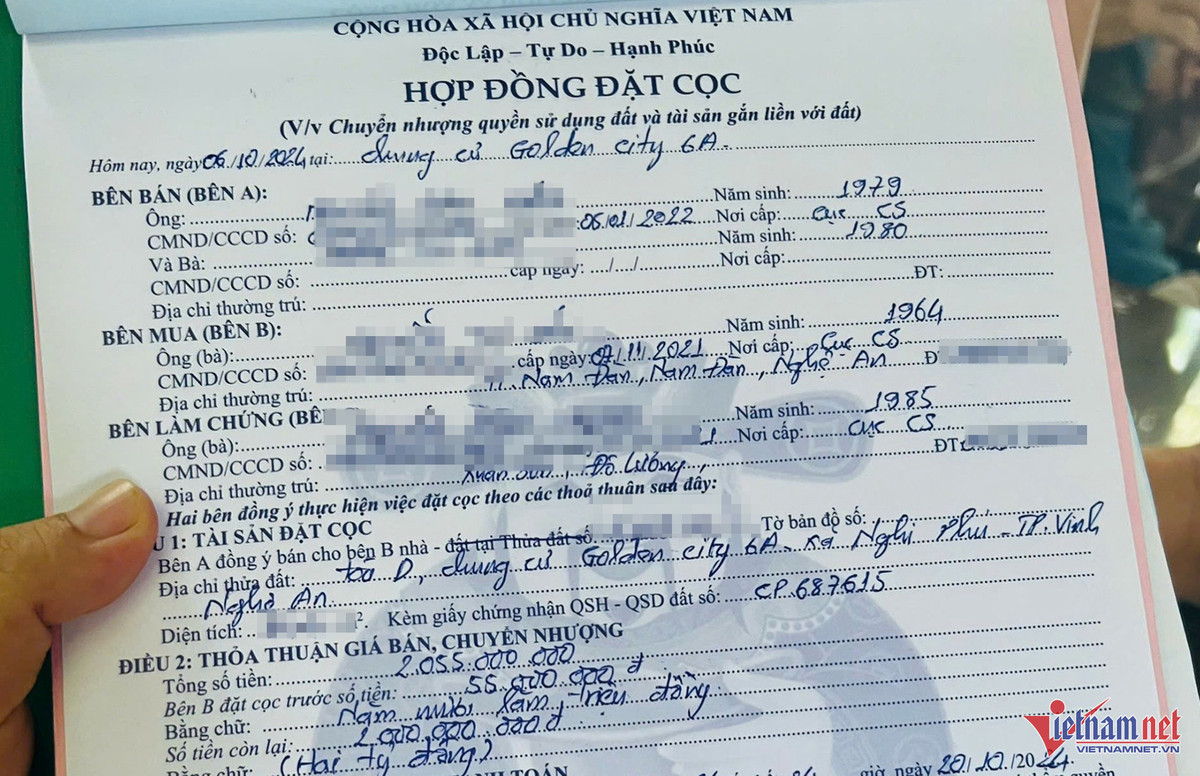 CỘNG HÒA XÃ HỘI CHỦ NGHĨA VIỆT NAM
Độc Lập – Tự Do – Hạnh Phúc
HỢP ĐỒNG ĐẶT CỌC
(V/v Chuyển nhượng quyền sử dụng đất và tài sản gắn liền với đất)
Hôm nay, ngày 06/10/2024 tại: chung cư Golden city 6A
BÊN BÁN (BÊN A):
Ông: Năm sinh: 1979
CMND/CCCD số: 05/01/2022 Nơi cấp: cục CS
Và Bà: Năm sinh: 1980
CMND/CCCD số: cấp ngày: .../.../... Nơi cấp:
Địa chỉ thường trú: ĐT:
BÊN MUA (BÊN B):
Ông (bà): Năm sinh: 1964
CMND/CCCD số: cấp ngày: 07/11/2021 Nơi cấp: cục CS
Địa chỉ thường trú: Nam Đàn, Nam Đàn, Nghệ An
BÊN LÀM CHỨNG (BÊN
Ông (bà): Năm sinh: 1985
CMND/CCCD số: Nơi cấp: cục CS
Địa chỉ thường trú: Đô Lương, ĐT:
Hai bên đồng ý thực hiện việc đặt cọc theo các thoả thuận sau đây:
U 1: TÀI SẢN ĐẶT CỌC
Bên A đồng ý bán cho bên B nhà - đất tại Thửa đất số Tờ bản đồ số:
Địa chỉ thửa đất: toà D, chung cư Golden city 6A - xã Nghi Phú - TP. Vinh
Nghệ An
Diện tích: ². Kèm giấy chứng nhận QSH - QSD đất số: CP 687615
ĐIỀU 2: THỎA THUẬN GIÁ BÁN, CHUYỂN NHƯỢNG
Tổng số tiền: 2.055.000.000
Bên B đặt cọc trước số tiền: 55.000.000 đ
Bằng chữ: Năm mươi lăm triệu đồng
Số tiền còn lại: 2.000.000.000 đ
Bằng chữ: (Hai tỷ đồng)
ANH TOÁN
giờ, ngày 20/10/2024
Vietnamnet
VIETNAMNET.VN